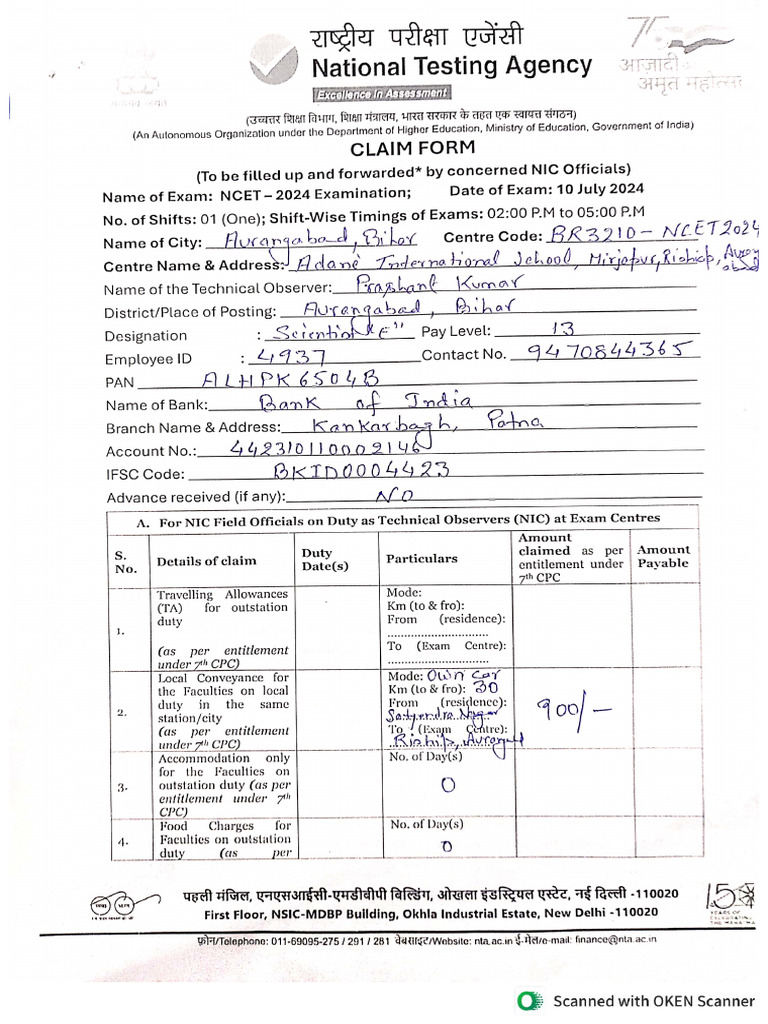 राष्ट्रीय परीक्षा एजेंसी
National Testing Agency
Excellence in Assessment
आज़ादी का
अमृत महोत्सव
(उच्चतर शिक्षा विभाग, शिक्षा मंत्रालय, भारत सरकार के तहत एक स्वायत्त संगठन)
(An Autonomous Organization under the Department of Higher Education, Ministry of Education, Government of India)
CLAIM FORM
(To be filled up and forwarded* by concerned NIC Officials)
Name of Exam: NCET – 2024 Examination; Date of Exam: 10 July 2024
No. of Shifts: 01 (One); Shift-Wise Timings of Exams: 02:00 P.M to 05:00 P.M
Name of City: Aurangabad, Bihar Centre Code: BR3210-NCET2024
Centre Name & Address:- Adane International School, Mirjapur, Rishiop, Aurangabad
Name of the Technical Observer: Prashant Kumar
District/Place of Posting: Aurangabad, Bihar
Designation : Scientist "E" Pay Level: 13
Employee ID : 4937 Contact No. 9470844365
PAN ALHPK6504B
Name of Bank: Bank of India
Branch Name & Address: Kankarbagh, Patna
Account No.: 442310110002146
IFSC Code: BKID0004423
Advance received (if any): NO
A. For NIC Field Officials on Duty as Technical Observers (NIC) at Exam Centres
S. No. Details of claim Duty Date(s) Particulars Amount claimed as per entitlement under 7th CPC Amount Payable
1. Travelling Allowances (TA) for outstation duty
(as per entitlement under 7th CPC)
Mode:
Km (to & fro):
From (residence):
..............................
To (Exam Centre):
..............................
2. Local Conveyance for the Faculties on local duty in the same station/city
(as per entitlement under 7th CPC)
Mode: Own Car
Km (to & fro): 30
From (residence):
Satyendra Nagar
To (Exam Centre):
Rishiop, Aurangabad
900/-
3. Accommodation only for the Faculties on outstation duty (as per entitlement under 7th CPC)
No. of Day(s)
0
4. Food Charges for Faculties on outstation duty (as per
No. of Day(s)
0
पहली मंजिल, एनएसआईसी-एमडीबीपी बिल्डिंग, ओखला इंडस्ट्रियल एस्टेट, नई दिल्ली -110020
First Floor, NSIC-MDBP Building, Okhla Industrial Estate, New Delhi -110020
फ़ोन/Telephone: 011-69095-275 / 291 / 281 वेबसाइट/Website: nta.ac.in ई-मेल/e-mail: finance@nta.ac.in
Scanned with OKEN Scanner